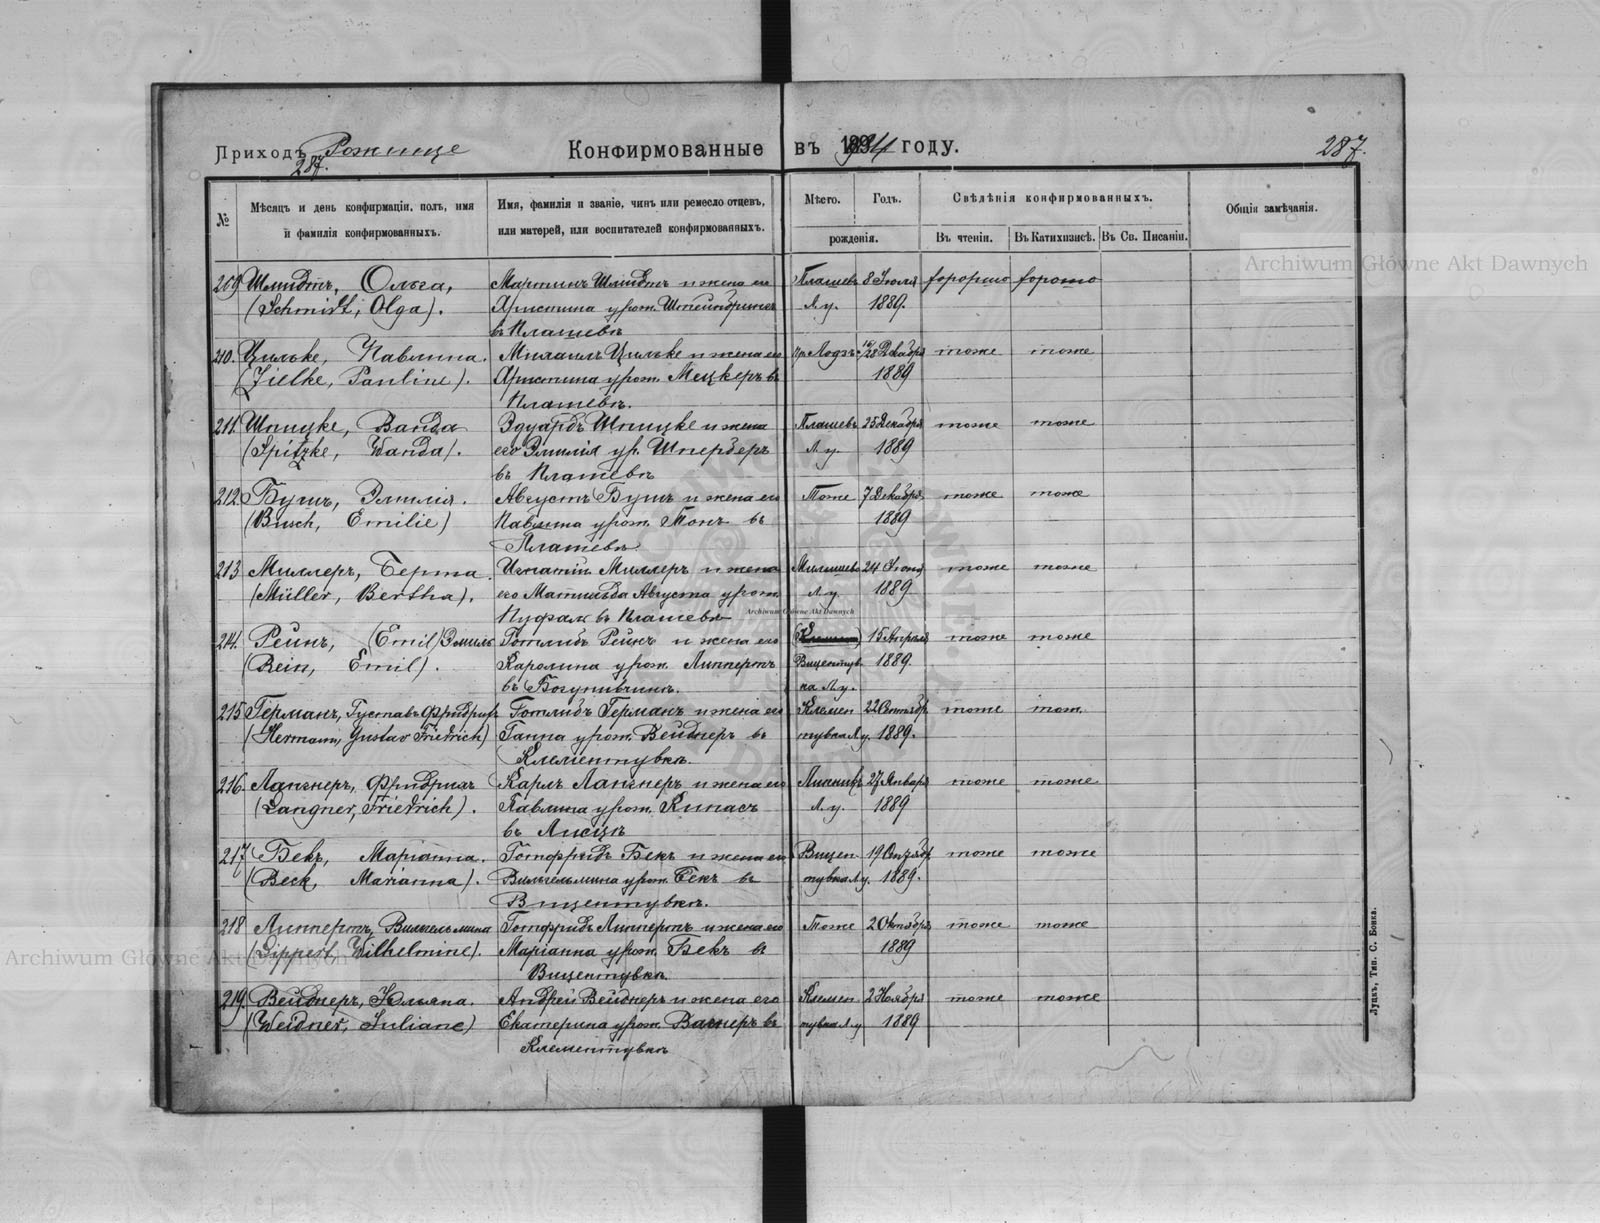 Приходъ Рожище
287.
Конфирмованные въ 1904 году.
287.
№
Мѣсяцъ и день конфирмаціи, полъ, имя
и фамилія конфирмованныхъ.
Имя, фамилія и званіе, чинъ или ремесло отцевъ,
или матерей, или воспитателей конфирмованныхъ.
Мѣсто.
Годъ.
рожденія.
Свѣдѣнія конфирмованныхъ.
Въ чтеніи.
Въ Катихизисѣ.
Въ Св. Писаніи.
Общія замѣчанія.
209 Шмидтъ, Ольга, Мартинъ Шмидтъ и жена его Плашевъ 8 Іюля хорошо хорошо
(Schmidt, Olga). Христина урож. Л. у. 1889.
въ Плашевѣ
210. Цильке, Павлина. Михаилъ Цильке и жена его Лодзь 16/28 Декабря тоже тоже
(Zielke, Pauline). Христина урож. Мецкеръ въ 1889
Плашевѣ.
211. Шпицке, Ванда Эдуардъ Шпицке и жена Плашевъ 25 Декабря тоже тоже
(Spitzke, Wanda). его Эмилія ур. Шперберъ Л. у. 1889
въ Плашевѣ
212. Бушъ, Эмилія. Августъ Бушъ и жена его Тоже 7 Декабря тоже тоже
(Busch, Emilie) Павлина урож. Тонъ въ 1889
Плашевѣ
213 Миллеръ, Берта. Игнатій Миллеръ и жена 24 Іюня тоже тоже
(Müller, Bertha). его Матильда Августа урож. Л. у. 1889
Пуфалъ въ Плашевѣ
214. Рейнъ, (Emil) Эмиль Готлибъ Рейнъ и жена его 15 Апрѣля тоже тоже
(Rein, Emil). Каролина урож. Липпертъ Вицентув- 1889.
въ ка Л. у.
215 Германъ, Густавъ Фридрихъ Готлибъ Германъ и жена его Клемен 22 тоже тож.
(Hermann, Gustav Friedrich) Ганна урож. Вейднеръ въ тувка Л. у. 1889.
Клементувкѣ.
216. Лангнеръ, Фридрихъ Карлъ Лангнеръ и жена его Липникъ 27 Января тоже тоже
(Langner, Friedrich). Павлина урож. Кипасъ Л. у. 1889
въ
217 Бекъ, Маріанна. Готфридъ Бекъ и жена его Вицен 19 тоже тоже
(Beck, Marianna). Вильгельмина урож. Бекъ въ тувка Л. у. 1889.
Вицентувкѣ.
218 Липпертъ, Вильгельмина Готфридъ Липпертъ и жена его Тоже 2 Октября тоже тоже
(Lippert, Wilhelmine). Маріанна урож. Бекъ въ 1889
Вицентувкѣ
219 Вейднеръ, Юльяна. Андрей Вейднеръ и жена его Клемен 2 Ноября тоже тоже
(Weidner, Juliane) Екатерина урож. Вагнеръ въ тувка Л. у 1889
Клементувкѣ
Луцкъ, Тип. С. Бонка.
Archiwum Główne Akt Dawnych
Archiwum Główne Akt Dawnych
Archiwum Główne Akt Dawnych